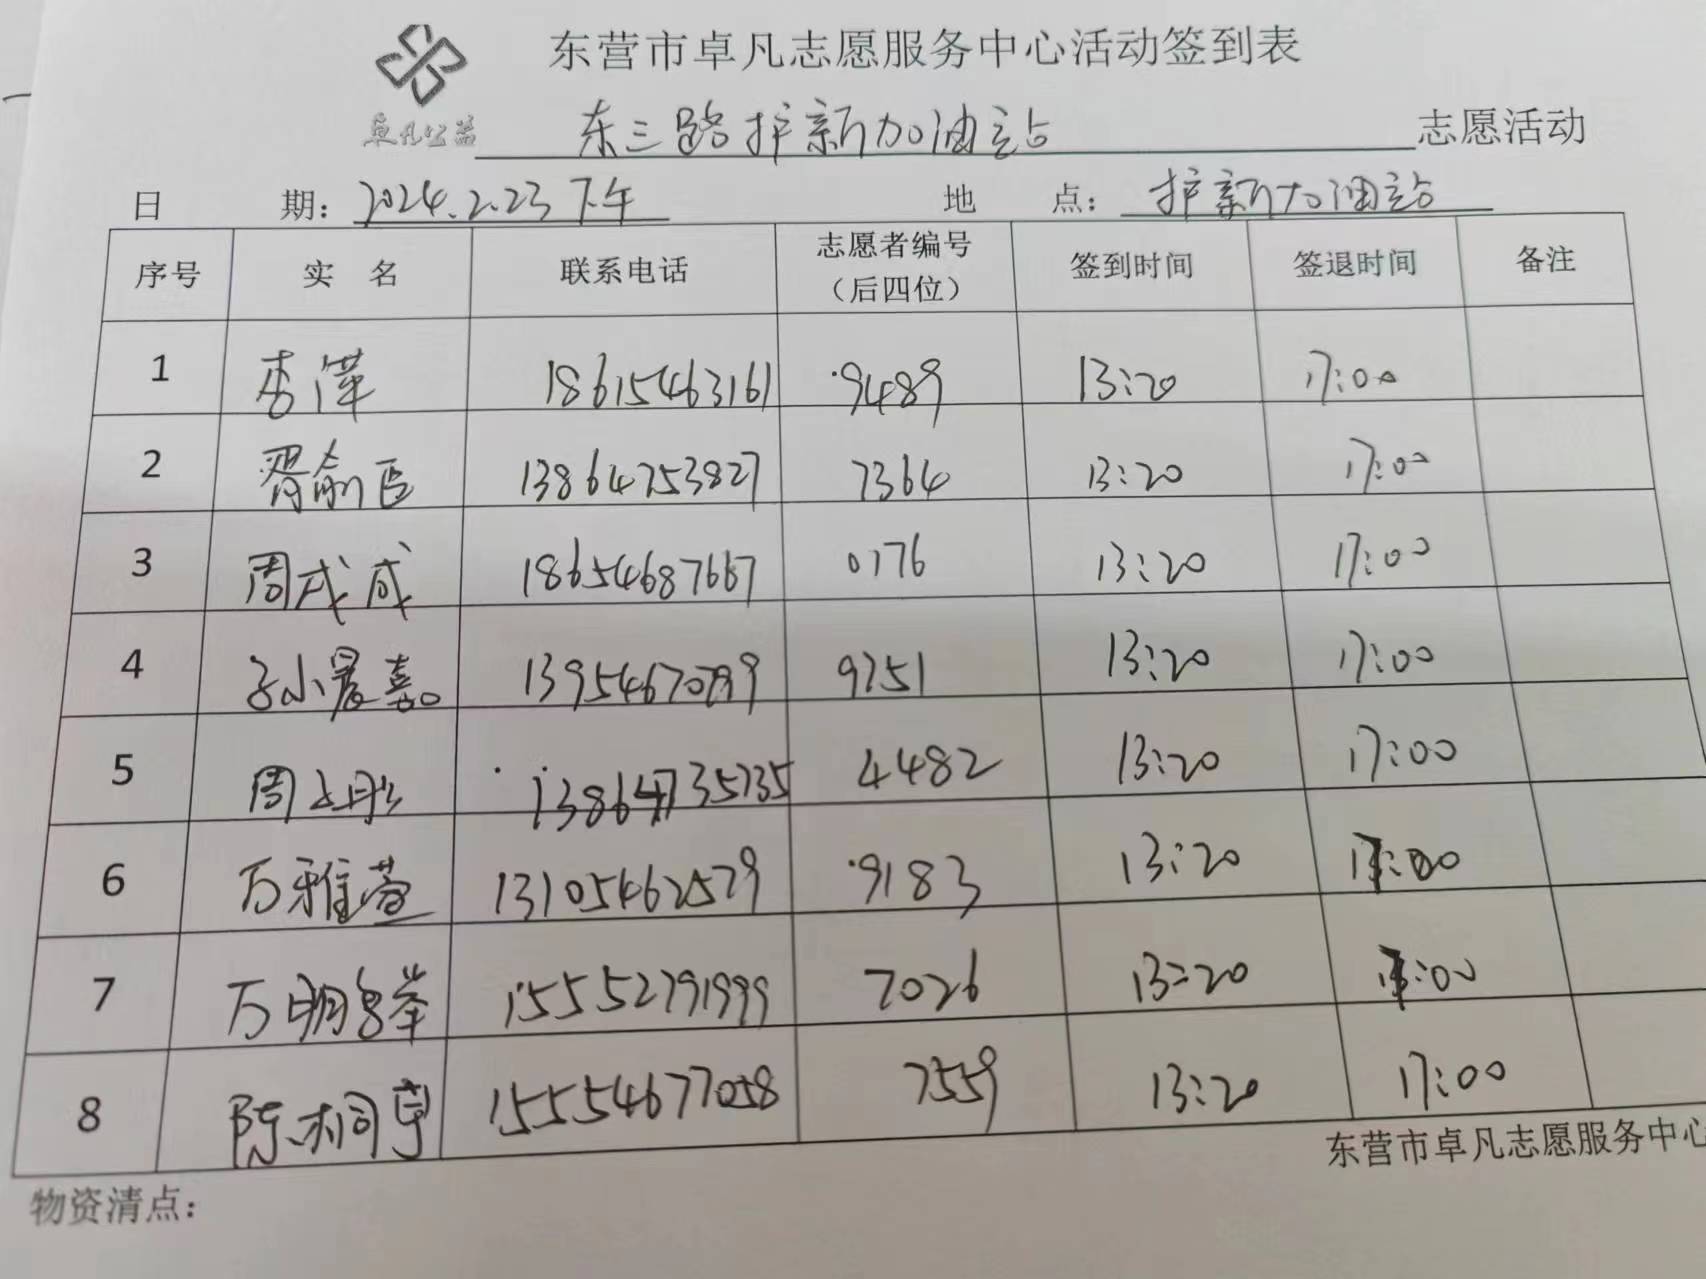 东营市卓凡志愿服务中心活动签到表
卓凡公益 东三路护新加油站 志愿活动
日 期：2024.2.23下午 地 点：护新加油站
序号 实 名 联系电话 志愿者编号（后四位） 签到时间 签退时间 备注
1 李萍 18615463161 9489 13:20 17:00
2 胥俞臣 13864753827 7364 13:20 17:00
3 周戌成 18654687667 0176 13:20 17:00
4 孙晨嘉 9251 13:20 17:00
5 周 13864735735 4482 13:20 17:00
6 万雅萱 13105462579 9183 13:20 17:00
7 万明 15552791999 7026 13:20 17:00
8 陈桐宇 15554677058 7559 13:20 17:00
东营市卓凡志愿服务中心
物资清点：